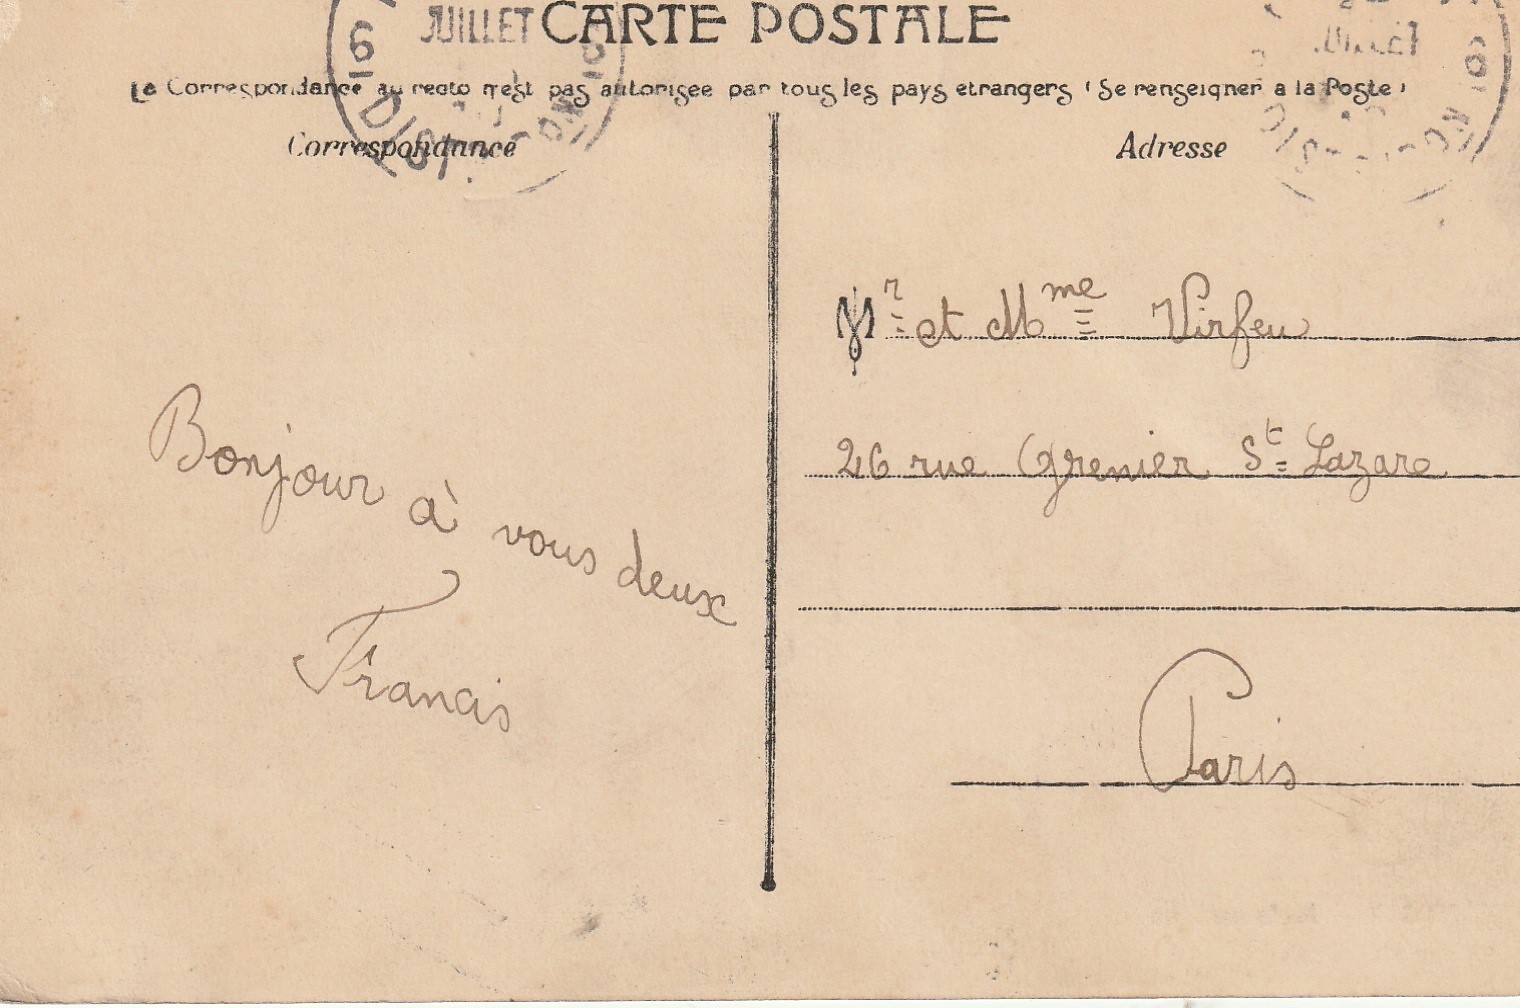 CARTE POSTALE
La Correspondance au recto n'est pas autorisee par tous les pays etrangers (Se renseigner a la Poste)
Correspondance
Adresse
JUILLET
6
Bonjour à vous deux
Francis
Mr et Mme Virfeu
26 rue Grenier St Lazare
Paris